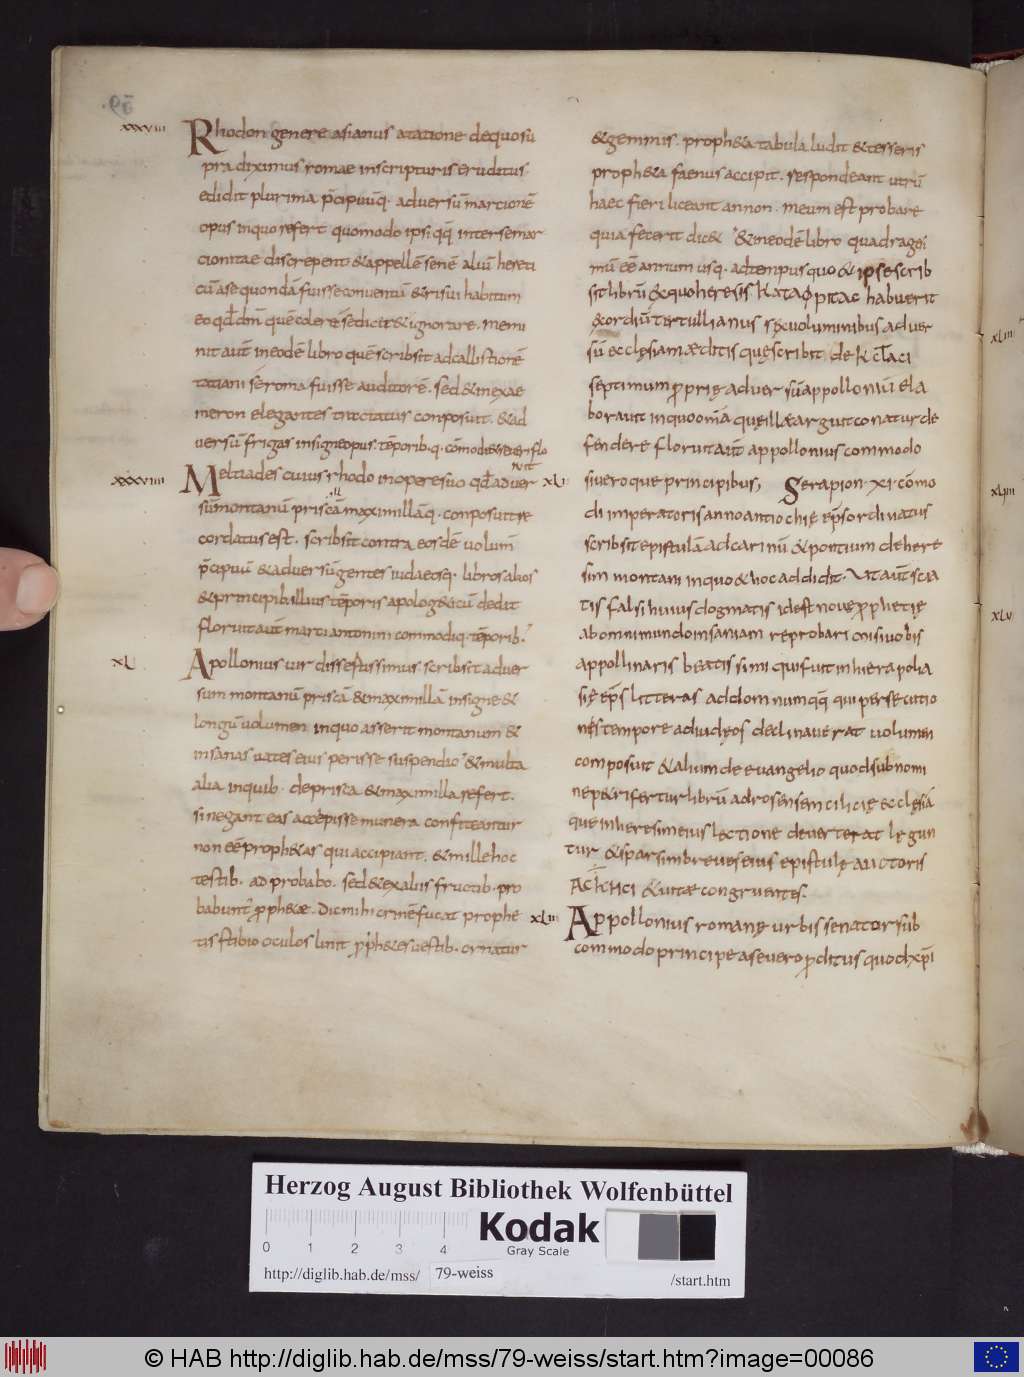 xxxviii
Rhodon genere asianus atatione dequosu
pra diximus romae inscripturis eruditus·
edidit plurima p̄cipuuq· adversū marcionē
opus inquo refert quomodo ipsi qq̄ inter se mar
cionitae discrepent &appellē senē aliū hereti
cū ase quondā fuisse conventū &risui habitum
eo qd̄ dm̄ quē coleret se dicit &ignorare. Memi
nit aut̄ in eodē libro quē scribsit ad callistionē
tatiani se romae fuisse auditorē. sed &in exae
meron elegantes tractatus composuit. &ad
versū frigas insigne opus. tēporib·q· cōmodi &severi flo
ruit
xxxviiii
Meltiades cuius rhodo in opere suo qd̄ adver
sū montanū priscā maximillāq· composuit re
cordatus est. scribsit contra eosdē volum̄
p̄cipuū &adversū gentes iudaeosq· libros alios
&principib· illius tēporis apolog&icū dedit
floruit aut̄ marci antonini commodiq· tēporib·
xL
Apollonius vir dissertissimus scribsit adver
sum montanū priscā &maximillā insigne &
longū volumen inquo asserit montanum &
insanas vates eius perisse suspendio &multa
alia inquib· de prisca &maximilla refert.
si negant eas accepisse munera confiteantur
non eē proph&as qui accipiant. &mille hoc
testib· ad probabo. sed &ex aliis fructib· pro
babunt̄ proph&ae. Dic mihi crinē fucat prophe
tis stibio oculos linit proph&es vestib· ornatur
&gemmis. proph&a tabula ludit &tesseris
proph&a faenus accipit. respondeant utrū
haec fieri liceant annon. meum est probare
quia fecerit dic& &in eodē libro quadragesi
mū eē annum usq· ad tempus quo &ipse scrib
sit librū &quo heresis KATAΦPITAC habuerit
exordiū tertullianus sex voluminibus adver
sū ecclęsiam ędits quę scribit de
septimum proprię adversū appollonium ela
boravit in quo omīa quę ille arguit conatur de
fendere floruit aut̄ appollonius commodo
xLi
sivero que principibus, Serapion· xi· cōmo
di imperatoris anno antiochię ep̄s ordinatus
scribsit epistulā ad carinū &pontium de here
sim montani in quo &hoc addidit. Ut aut̄ scia
tis falsi huius dogmatis idest nove prophetię
ab omni mundo insaniam reprobari misi vobis
appollinaris beatissimi qui fuit in hierapolia
sie ep̄s litteras ad domnumqq̄ qui persecutio
nis tempore ad iudęos declinaverat volumen
composuit &alium de evangelio quod sub nomi
ne p&ri fertur librū ad rosensem cilicię ecclęsiā
que in heresim eius lectione deverterat legun
tur &sparsim breves eius epistulę auctoris
&vitae congruentes.
xLii
Appollonius romanę urbis senator sub
commodo principe asevero proditus quod xpī
xLiii
xLiiii
xLv
Herzog August Bibliothek Wolfenbüttel
Kodak
Gray Scale
0 1 2 3 4
http://diglib.hab.de/mss/ 79-weiss /start.htm
© HAB http://diglib.hab.de/mss/79-weiss/start.htm?image=00086